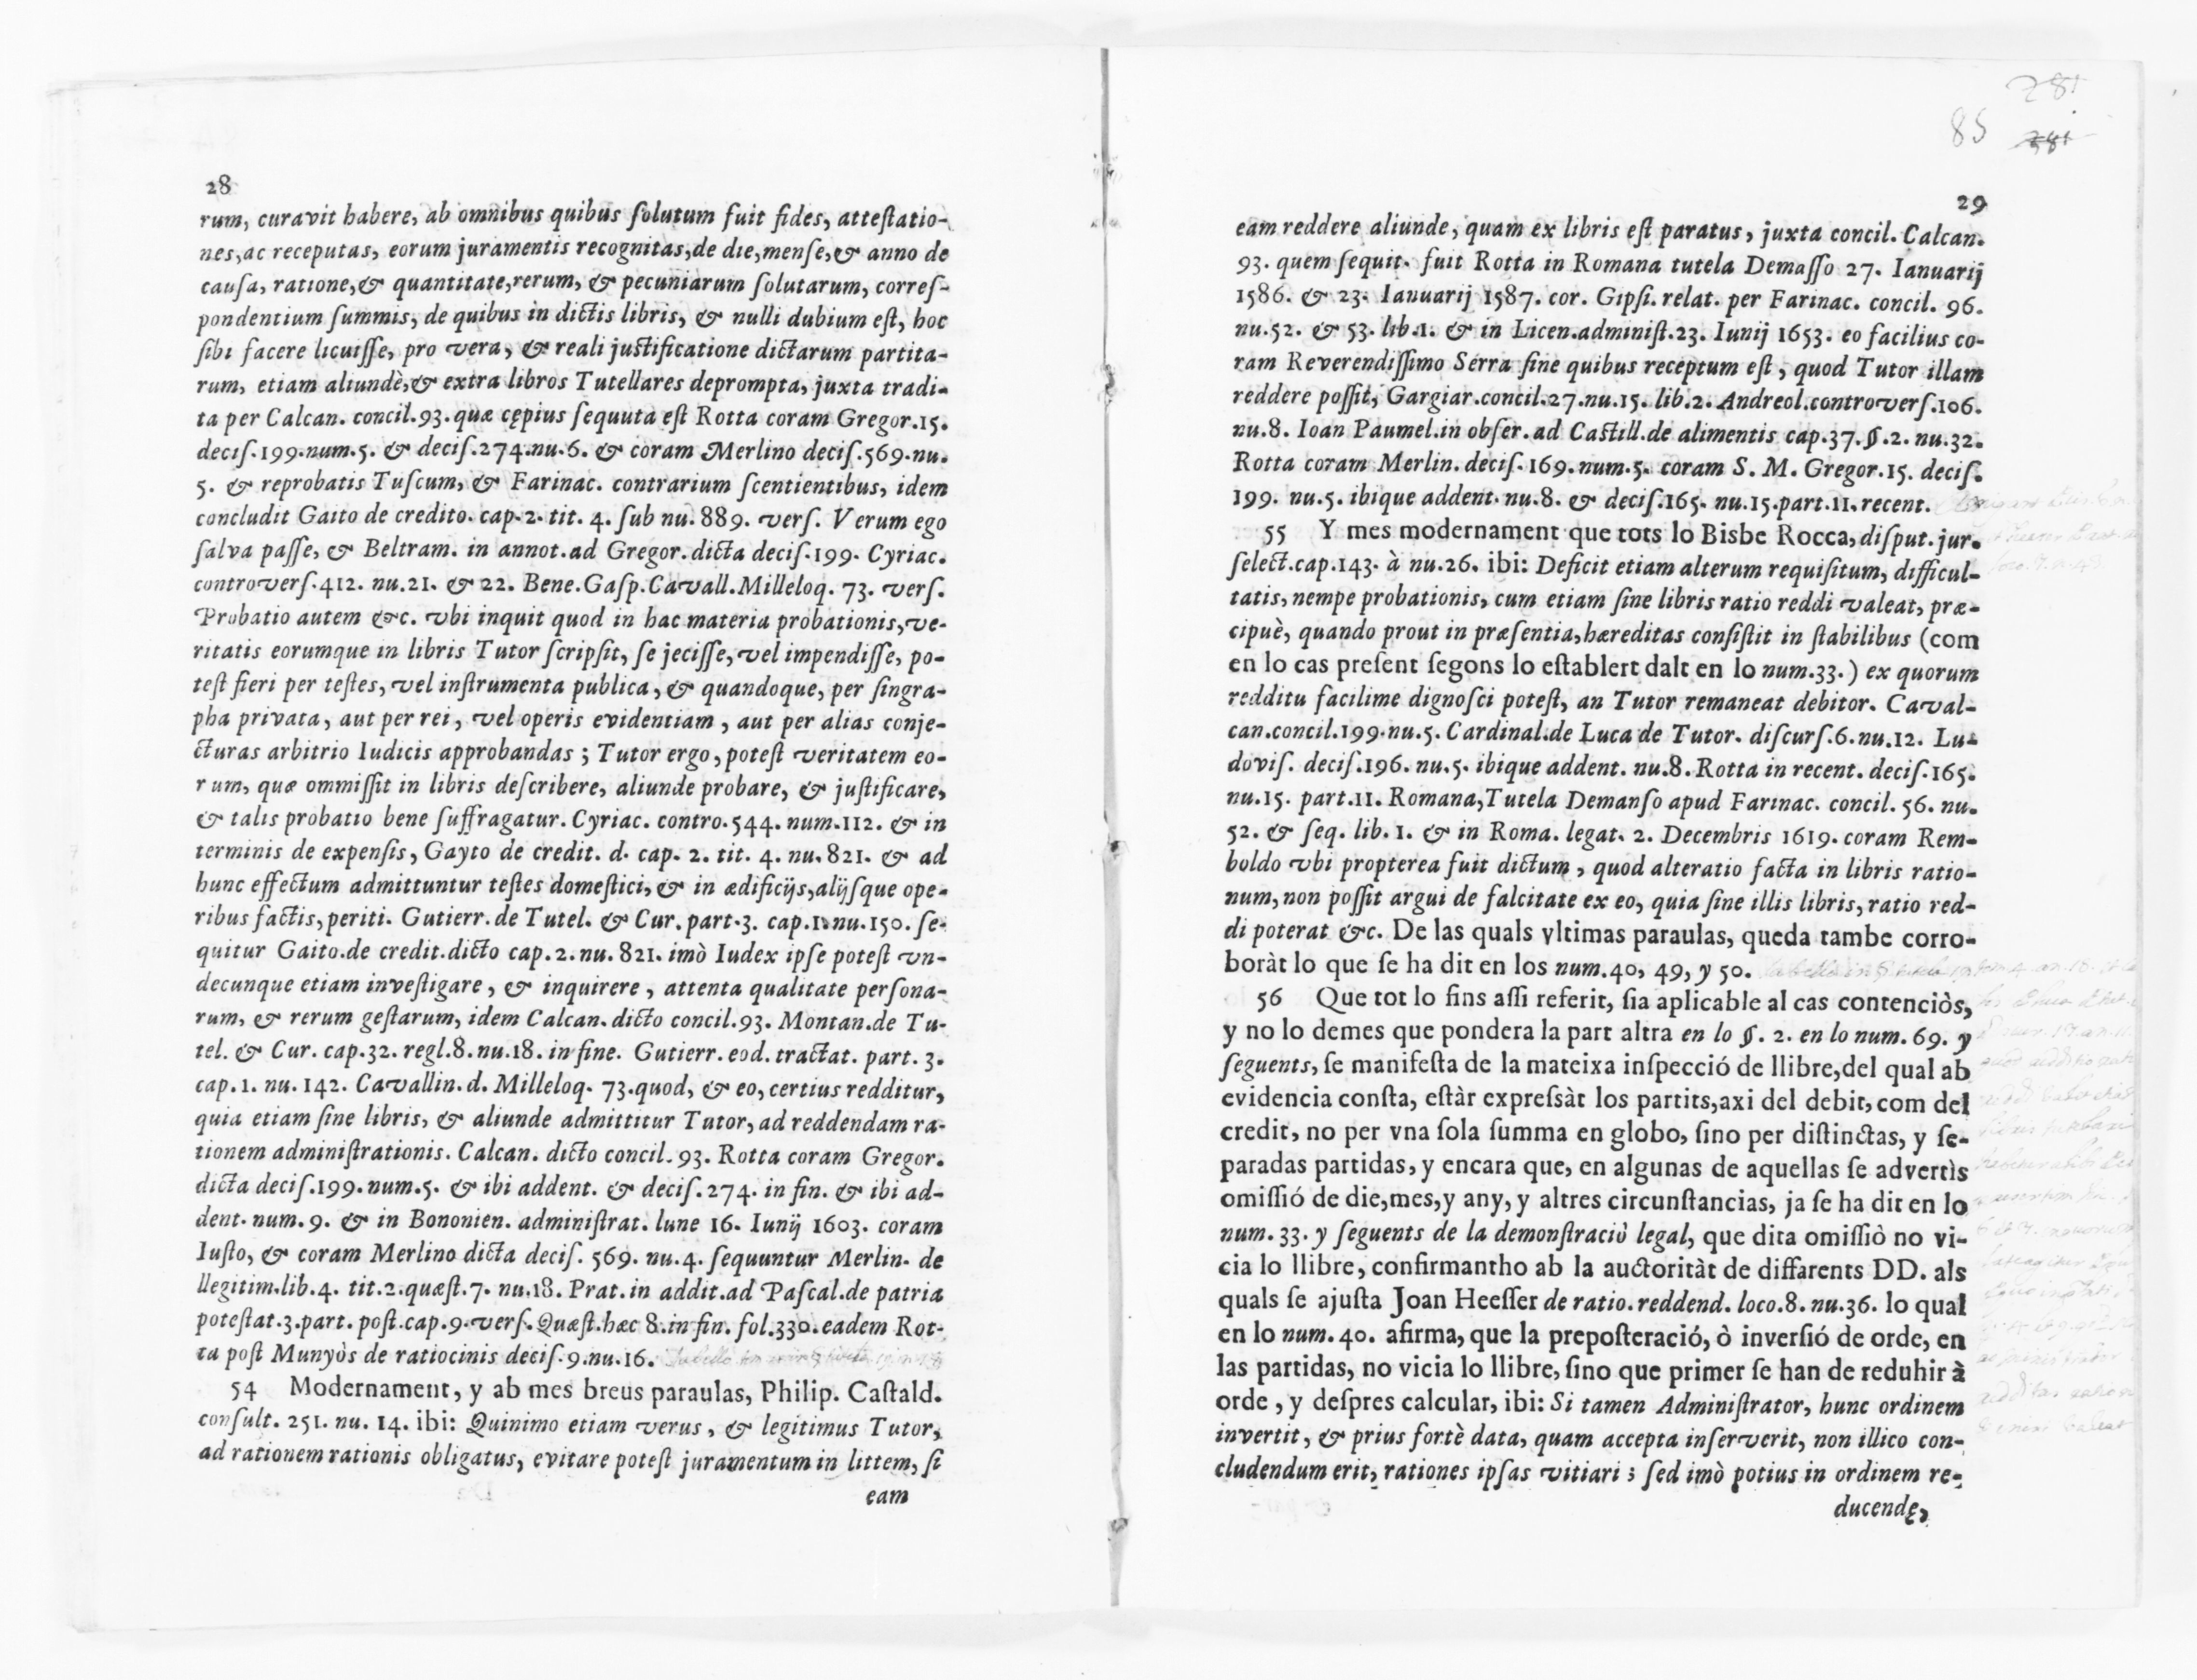 28
rum, curavit habere, ab omnibus quibus ſolutum fuit fides, atteſtatio-
nes, ac receputas, eorum juramentis recognitas, de die, menſe, & anno de
cauſa, ratione, & quantitate, rerum, & pecuniarum ſolutarum, correſ-
pondentium ſummis, de quibus in dictis libris, & nulli dubium eſt, hoc
ſibi facere licuiſſe, pro vera, & reali juſtificatione dictarum partita-
rum, etiam aliundè, & extra libros Tutellares deprompta, juxta tradi-
ta per Calcan. concil. 93. quæ cępius ſequuta eſt Rotta coram Gregor. 15.
deciſ. 199. num. 5. & deciſ. 274. nu. 6. & coram Merlino deciſ. 569. nu.
5. & reprobatis Tuſcum, & Farinac. contrarium ſcentientibus, idem
concludit Gaito de credito. cap. 2. tit. 4. ſub nu. 889. verſ. Verum ego
ſalva paſſe, & Beltram. in annot. ad Gregor. dicta deciſ. 199. Cyriac.
controverſ. 412. nu. 21. & 22. Bene. Gaſp. Cavall. Milleloq. 73. verſ.
Probatio autem &c. vbi inquit quod in hac materia probationis, ve-
ritatis eorumque in libris Tutor ſcripſit, ſe jeciſſe, vel impendiſſe, po-
teſt fieri per teſtes, vel inſtrumenta publica, & quandoque, per ſingra-
pha privata, aut per rei, vel operis evidentiam, aut per alias conje-
cturas arbitrio Iudicis approbandas; Tutor ergo, poteſt veritatem eo-
rum, quæ ommiſſit in libris deſcribere, aliunde probare, & juſtificare,
& talis probatio bene ſuffragatur. Cyriac. contro. 544. num. 112. & in
terminis de expenſis, Gayto de credit. d. cap. 2. tit. 4. nu. 821. & ad
hunc effectum admittuntur teſtes domeſtici, & in ædificijs, alijſque ope-
ribus factis, periti. Gutierr. de Tutel. & Cur. part. 3. cap. 1. nu. 150. ſe-
quitur Gaito. de credit. dicto cap. 2. nu. 821. imò Iudex ipſe poteſt vn-
decunque etiam inveſtigare, & inquirere, attenta qualitate perſona-
rum, & rerum geſtarum, idem Calcan. dicto concil. 93. Montan. de Tu-
tel. & Cur. cap. 32. regl. 8. nu. 18. in fine. Gutierr. eod. tractat. part. 3.
cap. 1. nu. 142. Cavallin. d. Milleloq. 73. quod, & eo, certius redditur,
quia etiam ſine libris, & aliunde admittitur Tutor, ad reddendam ra-
tionem adminiſtrationis. Calcan. dicto concil. 93. Rotta coram Gregor.
dicta deciſ. 199. num. 5. & ibi addent. & deciſ. 274. in fin. & ibi ad-
dent. num. 9. & in Bononien. adminiſtrat. lune 16. Iunij 1603. coram
Iuſto, & coram Merlino dicta deciſ. 569. nu. 4. ſequuntur Merlin. de
llegitim. lib. 4. tit. 2. quæſt. 7. nu. 18. Prat. in addit. ad Paſcal. de patria
poteſtat. 3. part. poſt. cap. 9. verſ. Quæſt. hæc 8. in fin. fol. 330. eadem Rot-
ta poſt Munyòs de ratiocinis deciſ. 9. nu. 16.
54 Modernament, y ab mes breus paraulas, Philip. Caſtald.
conſult. 251. nu. 14. ibi: Quinimo etiam verus, & legitimus Tutor,
ad rationem rationis obligatus, evitare poteſt juramentum in littem, ſi
eam
281
85 281
29
eam reddere aliunde, quam ex libris eſt paratus, juxta concil. Calcan.
93. quem ſequit. fuit Rotta in Romana tutela Demaſſo 27. Ianuarij
1586. & 23. Ianuarij 1587. cor. Gipſi. relat. per Farinac. concil. 96.
nu. 52. & 53. lib. 1. & in Licen. adminiſt. 23. Iunij 1653. eo facilius co-
ram Reverendiſſimo Serra ſine quibus receptum eſt, quod Tutor illam
reddere poſſit, Gargiar. concil. 27. nu. 15. lib. 2. Andreol. controverſ. 106.
nu. 8. Ioan Paumel. in obſer. ad Caſtill. de alimentis cap. 37. §. 2. nu. 32.
Rotta coram Merlin. deciſ. 169. num. 5. coram S. M. Gregor. 15. deciſ.
199. nu. 5. ibique addent. nu. 8. & deciſ. 165. nu. 15. part. 11. recent.
55 Y mes modernament que tots lo Bisbe Rocca, diſput. jur.
ſelect. cap. 143. à nu. 26. ibi: Deficit etiam alterum requiſitum, difficul-
tatis, nempe probationis, cum etiam ſine libris ratio reddi valeat, præ-
cipuè, quando prout in præſentia, hæreditas conſiſtit in ſtabilibus (com
en lo cas preſent ſegons lo eſtablert dalt en lo num. 33.) ex quorum
redditu facilime dignoſci poteſt, an Tutor remaneat debitor. Caval-
can. concil. 199. nu. 5. Cardinal. de Luca de Tutor. diſcurſ. 6. nu. 12. Lu-
doviſ. deciſ. 196. nu. 5. ibique addent. nu. 8. Rotta in recent. deciſ. 165.
nu. 15. part. 11. Romana, Tutela Demanſo apud Farinac. concil. 56. nu.
52. & ſeq. lib. 1. & in Roma. legat. 2. Decembris 1619. coram Rem-
boldo vbi propterea fuit dictum, quod alteratio facta in libris ratio-
num, non poſſit argui de falcitate ex eo, quia ſine illis libris, ratio red-
di poterat &c. De las quals vltimas paraulas, queda tambe corro-
boràt lo que ſe ha dit en los num. 40, 49, y 50.
56 Que tot lo fins aſſi referit, ſia aplicable al cas contenciòs,
y no lo demes que pondera la part altra en lo §. 2. en lo num. 69. y
ſeguents, ſe manifeſta de la mateixa inſpecció de llibre, del qual ab
evidencia conſta, eſtàr expreſsàt los partits, axi del debit, com del
credit, no per vna ſola ſumma en globo, ſino per diſtinctas, y ſe-
paradas partidas, y encara que, en algunas de aquellas ſe advertìs
omiſſió de die, mes, y any, y altres circunſtancias, ja ſe ha dit en lo
num. 33. y ſeguents de la demonſtració legal, que dita omiſſiò no vi-
cia lo llibre, confirmantho ab la auctoritàt de differents DD. als
quals ſe ajuſta Joan Heeſſer de ratio. reddend. loco. 8. nu. 36. lo qual
en lo num. 40. afirma, que la prepoſteració, ò inverſió de orde, en
las partidas, no vicia lo llibre, ſino que primer ſe han de reduhir à
orde, y deſpres calcular, ibi: Si tamen Adminiſtrator, hunc ordinem
invertit, & prius fortè data, quam accepta inſerverit, non illico con-
cludendum erit, rationes ipſas vitiari; ſed imò potius in ordinem re-
ducendę,